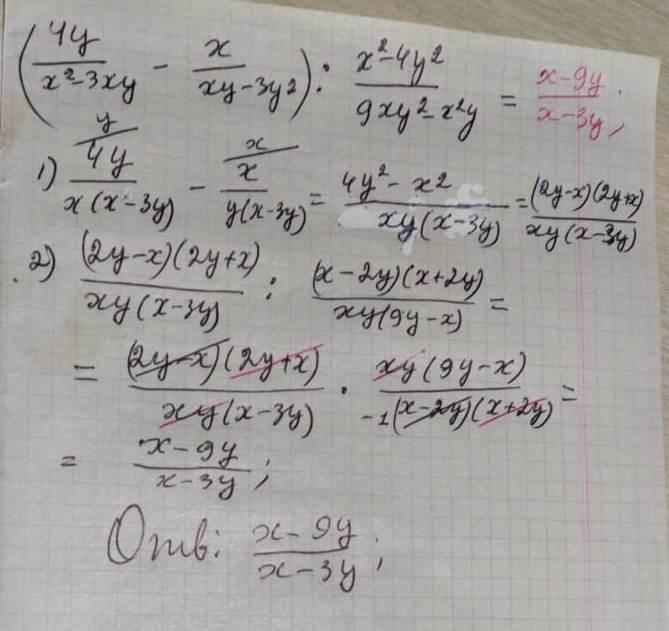 (4y/(x²-3xy) - x/(xy-3y²)) : (x²-4y²)/(9xy²-x²y) = (x-9y)/(x-3y);
1) 4y/(x(x-3y)) - x/(y(x-3y)) = (4y²-x²)/(xy(x-3y)) = (2y-x)(2y+x)/(xy(x-3y))
2) (2y-x)(2y+x)/(xy(x-3y)) : (x-2y)(x+2y)/(xy(9y-x)) =
= (2y-x)(2y+x)/(xy(x-3y)) · xy(9y-x)/(-1(x-2y)(x+2y)) =
= (x-9y)/(x-3y);
Отв: (x-9y)/(x-3y);